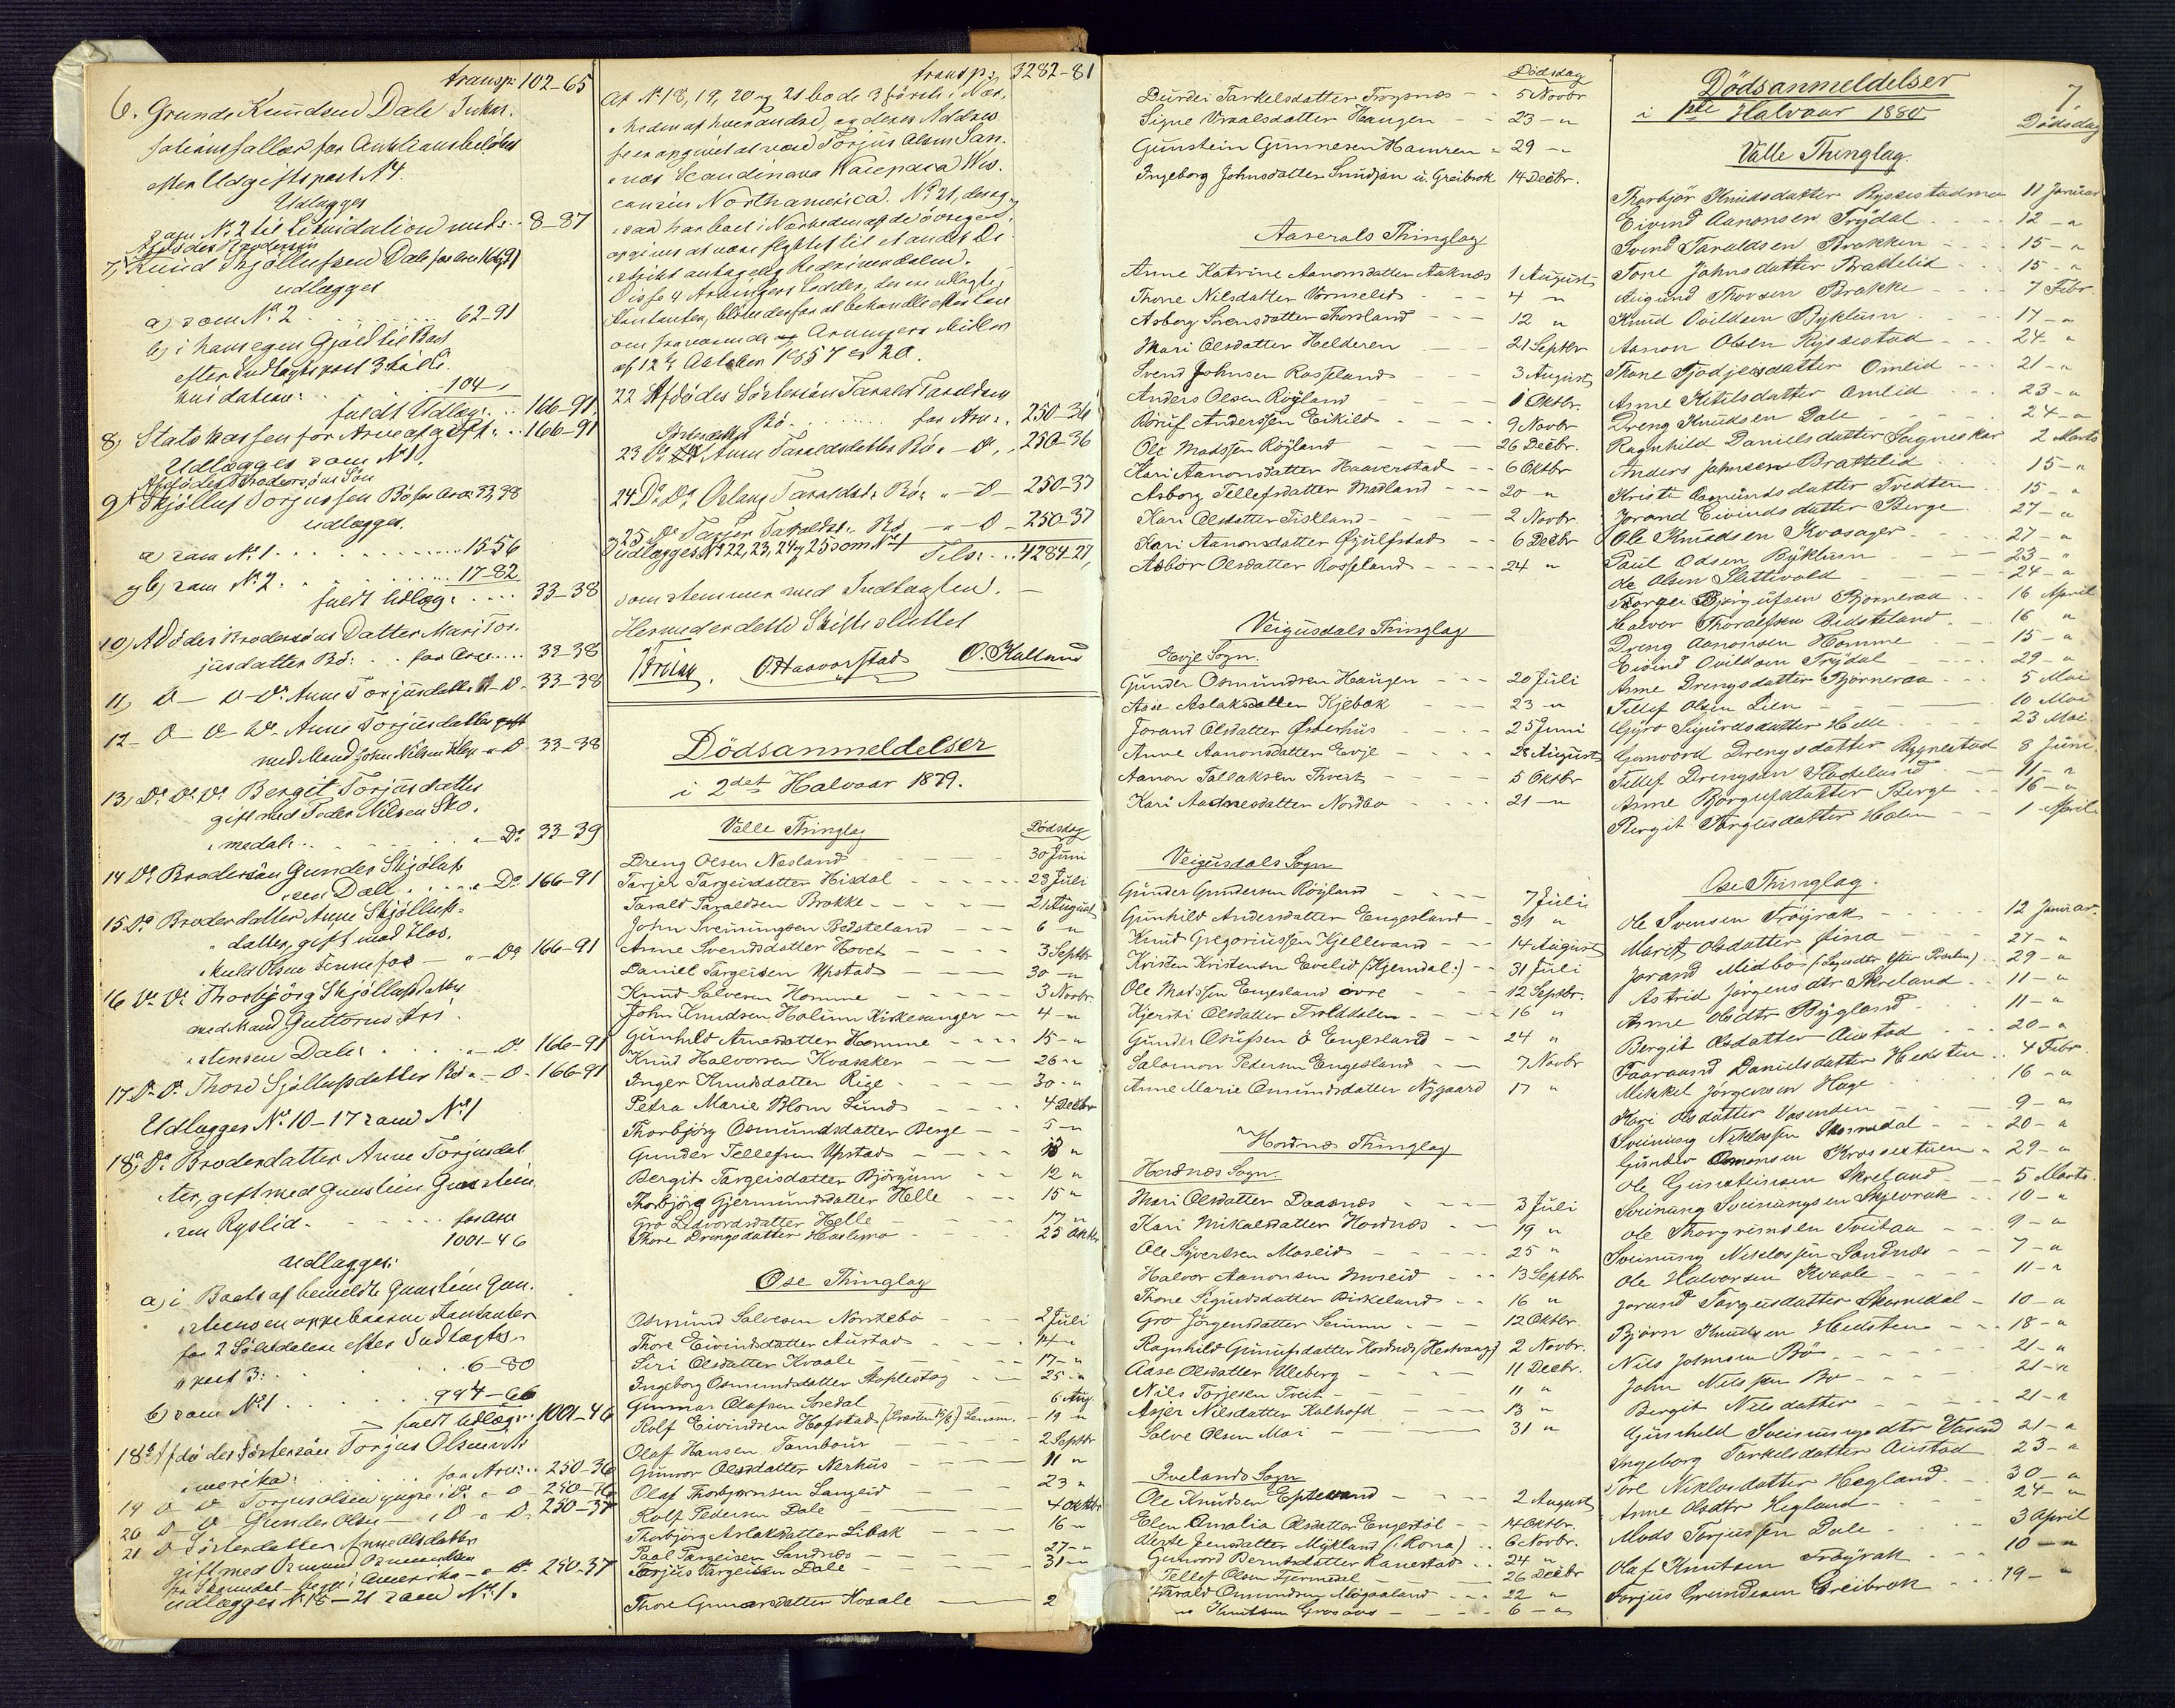 transp: 102-65
6. Grunde Knudsen Dale
efter Udgiftspost N 4.
Udlægges
som N. 2 til Likvidation med.. 8-87
7, Knud Skjöllufsen Dale for Arv 166,91
udlægges
a) som No 2 . . . . . 62-91
b) i hans egen Gjæld til Boet
efter Indtægtspost 3 til Li-
kvidation: . . 104,
fuldt Udlæg: . . 166-91.
8, Statskassen for Arveafgift: .. 166-91
Udlægges som No 1.
Afdødes Brodersöns Sön
9 Skjölluf Torjussen Bö for Arv 33,38
udlægges.
a) som No. 1 . . . . . 15-56
og b) som No 2. . . . . 17-82
fuldt Udlæg: . . . . 33-38
10) Afdödes Brodersöns Datter Mari Tor-
jusdatter Bö: . . for Arv . . . 33-38
11, D- D- Do. Anne Torjusdatter - D. 33-38
12- D- D- Do- Anne Torjusdatter gift
med Mand John Nilsen - D- 33-38
13, Do. Do. Do. Bergit Torjusdatter
gift med Peder Nilsen Sko-
medal: . . . . - Do 33-39
14 Do Brodersön Gunder Skjöluf-
sen Dale . . . . Do. 166-91
15 Do Broderdatter Anne Skjölluf-
datter, gift med
Olsen Fennefos - - Do 166-91
16 Do Do Thorbjörg Skjöllufsdatter
med Mand Guttorm
stensen Dale: . . . - Do. 166-91
17. Do. Do. Thore Sjöllufsdatter Bö - D- 166-91
Udlægges No. 10-17 som No 1
18a, Do Broderdatter Anne Torjusdat-
ter, gift med Gunstein Gunstein-
sen Ryslid. - - - for Arv
1001-46
udlægges:
a) i Boets af bemeldte Gunstein Gun-
steinsen oppebaarne Kontanter
for 2 Sölvdalere efter Indtægts-
post 3: . . . . 6-80
b) som No 1 . . . . 994-66
fuldt Udlæg: . 1001-46
18b Afdödes Söstersön Torjus Olsen i
Amerika: . . . . for Arv: . . 250-36
19 D- D- Torjus Olsen yngre i Do. - D 250-36
20 D- D- Gunder Olsen - i D - D. 250-37
21 D- Sösterdatter Anne Olsdatter
gift med Osmund Osmundsen
Skomedal - begge i Amerika - - D. 250-37
Udlægges No 18-21 som No 1.
transp: 3282-81
Af No 18, 19, 20 og 21 bode 3 förste i Nær-
heden af hverandre og deres Address
er opgivet at være Torjus Olsen San-
nes Scandinavia Waupaca Wis-
consin Northamerica. No 21, der og-
saa har boet i Nærheden af de övrige er
opgivet at være flyttet til et andet Di-
strikt antagelig Redriverdalen.
Disse 4 Arvingers Lodder, der ere udlagte i
Kontanter, blive derfor at behandle efter Lov
om fraværende Arvingers Midler
af 12te Oktober 1857 § 20.
22 Afdödes Söstersön Tarald Taraldsen
Bö . . . . . for Arv: . 250-36
Sösterdatter
23 Do Anne Taraldsdatter Bö - D. . 250-36
24 Do. Do. Aslaug Taraldsd: Bö: - D - 250-37
25 Do Taraldsd: Bö - - D - 250-37
Udlægges No 22, 23, 24 og 25 som No 1 Tils: . . 4284-27,
som stemmer med Indtægten.
Hermed er dette Skifte sluttet
O. Haaverstad O. Kalland
Dödsanmeldelser
i 2det Halvaar 1879.
Valle Thinglag Dödsdag
Dreng Olsen Nesland 30 Juni
Tarjer Targeisdatter Hisdal 23 Juli
Tarald Taraldsen Brokke 21 August
John Sveinungsen Bedsteland 6 -"
Anne Svendsdatter Hovet 3 Septbr
Daniel Targeisen Upstad 30 -"
Knud Salvesen Homme 3 Novbr.
John Knudsen Holum Kirkesanger 4 -"
Gunhild Arnesdatter Homme 15 -"
Knud Halvorsen Kvasaker 26 -"
Inger Knudsdatter Rige 30 -"
Petra Marie Blom Lund 4 Decbr
Thorbjörg Osmundsdatter Berge 5 -"
Gunder Tellefsen Upstad 13 "
Bergit Targeisdatter Björgum 12 "
Thorbjörg Gjermundsdatter Helle 15 "
Gro Sidvordsdatter Helle 17 "
Thore Drengsdatter Harlemo 25 Oktbr
Ose Thinglag
Osmund Salvesen Nordebö 2 Juli
Thore Eivindsdatter Austad 14 -"
Siri Olsdatter Kvaale 17 -"
Ingeborg Osmundsdatter 25 -"
Gunnar Olafsen Aasedal 6 Aug.
Rolf Eivindsen Hofstad Lensm. 19 "
Olaf Hansen Tambour 2 Septbr
Gunvor Olesdatter Nerhus 11 "
Olaf Thorbjørnsen Langeid 23 "
Rolf Pedersen Dale 4 Oktbr
Thorbjörg Aslaksdatter Libak 16 -"
Paal Targeisen Sandnes 27 -"
Torjus Targeisen Dale 31 -"
Thore Gunnarsdatter Kvaale 2
Dödsdag
Durdei Tarkelsdatter 5 Novbr
Signe Vraalsdatter Haugen 23 - "
Gunstein Gunnesen Hamren 29 -"
Ingeborg Johnsdatter Greibrok 14 Decbr.
Aaserals Thinglag
Anne Katrine Aanonsdatter Aaknes 1 August
Thore Nilsdatter Vormelid 4 "
Asborg Sorensdatter Thorsland 12 "
Mari Olesdatter Helderen 21 Septbr
Svend Johnsen Rosseland 3 August
Anders Olsen Röyland 1 Oktbr.
Böruf Anderssen Eikild 9 Novbr
Ole Madssen Röyland 26 Decbr.
Kari Aanonsdatter Haaverstad 6 Oktbr
Asborg Tellefsdatter Madland 20 -"
Kari Olsdatter Fiskland 2 Novbr.
Kari Aanonsdatter 6 Decbr
Asbor Olesdatter Rosseland 24 "
Veigusdals Thinglag
Evje Sogn.
Gunder Osmundsen Haugen 20 Juli
Asie Aslaksdatter Kjebak 23 -"
Jorand Olsdatter Østerhus 25 Juni
Anne Aanonsdatter Evje 28 August
Aanon Tallaksen Tveit 5 Oktbr
Kari Aadnesdatter Nordbø 21 -"
Veigusdals Sogn
Gunder Gundersen Röyland 7 Juli
Gunhild Andersdatter Engesland 31 "
Knud Gregoriussen Kjellevand 14 August
Kristen Kristensen Evelid (Kjemdal:) 31 Juli
Ole Madssen Engesland övre 12 Septbr.
Kjersti Olesdatter Trolddalen 16 "
Gunder Osufsen ö Engesland 24 "
Salomon Pedersen Engesland 7 Novbr
Anne Marie Omundsdatter Nygaard 17 "
Hordnes Thinglag
Hordnes Sogn.
Mari Olesdatter Daasnes 3 Juli
Kari Mikalsdatter Hordnes 19 "
Ole Syvertsen Moseid 25 "
Halvor Aanonsen Moseid 13 Septbr
Thone Sigurdsdatter Birkeland 16 "
Gro Jörgensdatter Senum 12 Oktbr.
Ragnhild Gunufsdatter Hordnes 2 Novbr.
Aase Olesdatter Uleberg 11 Decbr.
Nils Torjesen Tveit 11 "
Asjer Nilsdatter Kalhoft 13 "
Salve Olsen Moi 31 "
Ivelands Sogn
Ole Knudsen Eptevand 2 August
Elen Amalia Olesdatter Engestöl 14 Oktbr.
Jensdatter Mykland (i Rona) 6 Novbr.
Gunvord Berntsdatter Ranestad 24 "
Tellef Olsen Tjermedal 26 Decbr
Tarald Omundsen 22 "
Knutsen Grosaas 6 -"
Dödsanmeldelser 7.
i 1ste Halvaar 1880 Dödsdag
Valle Thinglag.
Thorbjör Knudsdatter Rysestadmo 11 Januar
Eivind Aanonsen Trydal 12 -"
Svend Taraldsen Brokken 15 -"
Tone Johnsdatter Brattelid 15 -"
Augund Thorsen Brokke 7 Febr.
Knud Ovildsen Byklum 17 -"
Aanon Olsen Rysestad 24 "
Thone Tjodjelsdatter Omlid 21 -"
Anne Ketilsdatter Omlid 23 -"
Dreng Knudsen Dale 24 -"
Ragnhild Danielsdatter Sagneskar 2 Marts
Anders Johnsen Brattelid 15 -"
Kristi Osmundsdatter Tvedten 15 -"
Jorand Eivindsdatter Berge 27 -"
Ole Knudsen Kvasager 27 -"
Paul Odsen Byklum 23 "
Ole Olsen Slettevold 24 -"
Targei Björgufsen Bjørneraa 16 April
Halvor Thoralfsen Bedsteland 16 "
Dreng Aanonsen Homme 15 -"
Eivind Ovildsen Trydal 29 -"
Anne Drengsdatter Bjørneraa 5 Mai
Tellef Olsen Lien 10 Mai
Gyro Sigurdsdatter Helle 23 Mai
Gunvord Drengsdatter Rygnestad 8 Juni.
Tellef Drengsen Flateland 11 -"
Anne Borgufsdatter Berge 16 -"
Bergit Targeisdatter Holen 1 April
Ose Thinglag.
Ole Svensen Fröyrak 12 Januar.
Marit Olsdatter Jina 27 -"
Jorand Midbö 29 -"
Astrid Jørgensdtr Skreland 11 -"
Anne Olsdtr Bygland 11 -"
Bergit Olsdatter Austad 20 -"
Taaraand Danielsdatter Hedsten 4 Febr.
Mikkel Jørgensen Hage 16 -"
Kari Olsdatter Vasenden 9 -"
Sveinung Niklossen Skomedal 20 -"
Gunder Omonsen Krossestuen 29 -"
Ole Gunsteinsen Skreland 5 Marts.
Sveinung Sveinungsen Skjevrak 10 -"
Ole Thorgrimsen Tveitaa 9 -"
Sveinung Niklossen Sandnes 7 -"
Ole Halvorsen Kvaale 11 -"
Jorand Torgusdatter Skomedal 10 -"
Bjørn Knudsen Hedsten 18 -"
Nils Johnsen Bö 21 -"
John Nilssen Bö 21 -"
Bergit Nilsdatter 21 -"
Gunhild Sveinungsdtr Vasend 21 -"
Ingeborg Tarkelsdatter Austad 23 -"
Tore Niklosdatter Hegland 30 -"
Anne Olsdtr Hegland 24 -"
Mads Torjussen Dale 3 April
Olaf Knutsen Fröyrak 10 -"
Torjus Grundesen Greibrok 19 -"